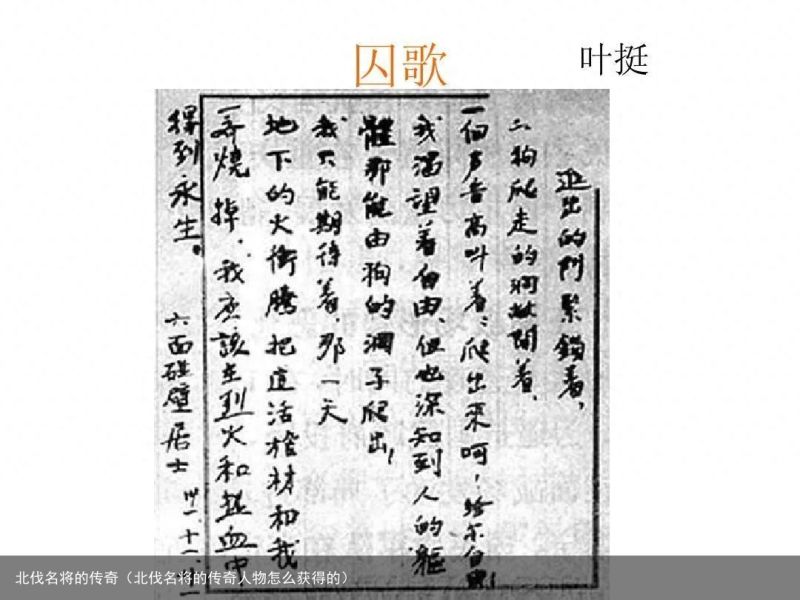 囚歌
叶挺
出的門緊鎖着、
狗爬走的洞敞開着、
一個声音高叫着:爬出來呵!给尔自由!
我渴望着自由、但也深知到人的軀
體那能由狗的洞子爬出!
我只能期待着,那一天
地下的火衝騰 把這活棺材和我
一齐燒掉,我应該在烈火和热血中
得到永生。
六面碰壁居士 卅一、十一、
北伐名将的传奇（北伐名将的传奇人物怎么获得的）